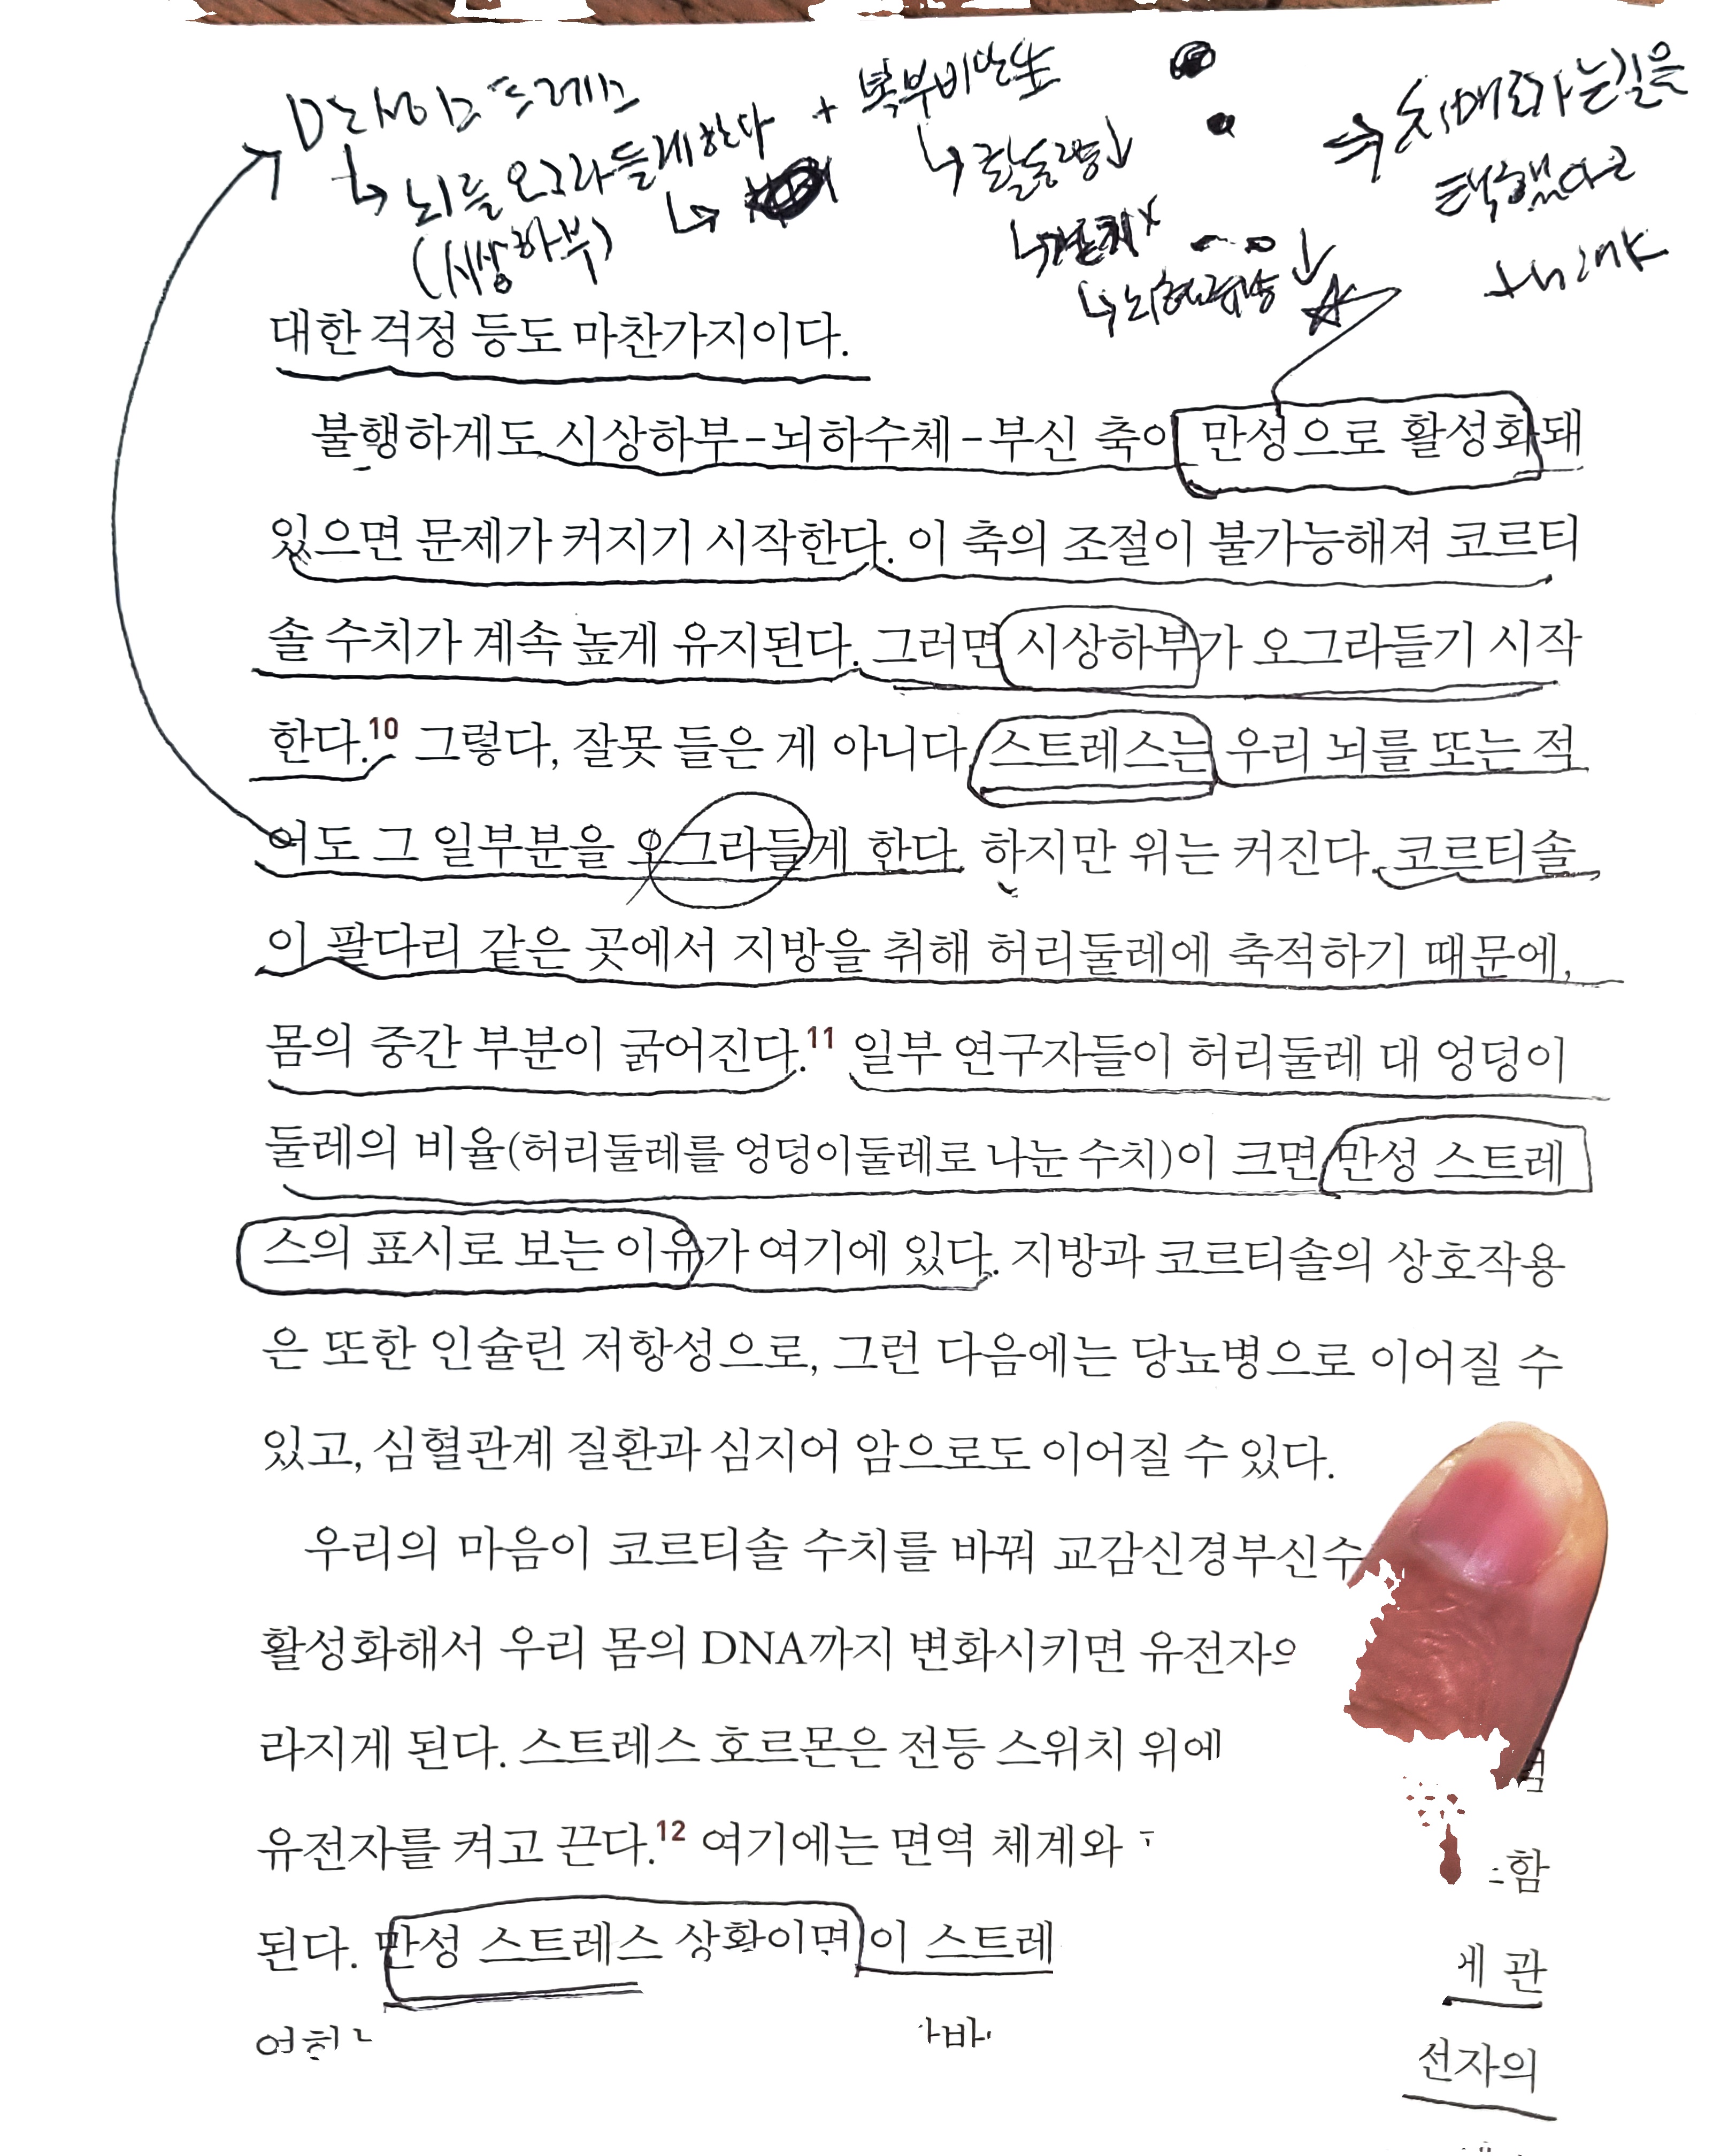 만성스트레스 + 복부비만 ⇒ 치매로가는길을
↳ 뇌를 오그라들게한다 ↳ 활동 ↓ 택했다고
(시상하부) think
대한 걱정 등도 마찬가지이다.
불행하게도 시상하부-뇌하수체-부신 축이 만성으로 활성화돼
있으면 문제가 커지기 시작한다. 이 축의 조절이 불가능해져 코르티
솔 수치가 계속 높게 유지된다. 그러면 시상하부가 오그라들기 시작
한다.10 그렇다, 잘못 들은 게 아니다. 스트레스는 우리 뇌를 또는 적
어도 그 일부분을 오그라들게 한다. 하지만 위는 커진다. 코르티솔
이 팔다리 같은 곳에서 지방을 취해 허리둘레에 축적하기 때문에,
몸의 중간 부분이 굵어진다.11 일부 연구자들이 허리둘레 대 엉덩이
둘레의 비율(허리둘레를 엉덩이둘레로 나눈 수치)이 크면 만성 스트레
스의 표시로 보는 이유가 여기에 있다. 지방과 코르티솔의 상호작용
은 또한 인슐린 저항성으로, 그런 다음에는 당뇨병으로 이어질 수
있고, 심혈관계 질환과 심지어 암으로도 이어질 수 있다.
우리의 마음이 코르티솔 수치를 바꿔 교감신경부신수
활성화해서 우리 몸의 DNA까지 변화시키면 유전자
라지게 된다. 스트레스 호르몬은 전등 스위치 위에
유전자를 켜고 끈다.12 여기에는 면역 체계와 함
된다. 만성 스트레스 상황이면 이 스트레 관